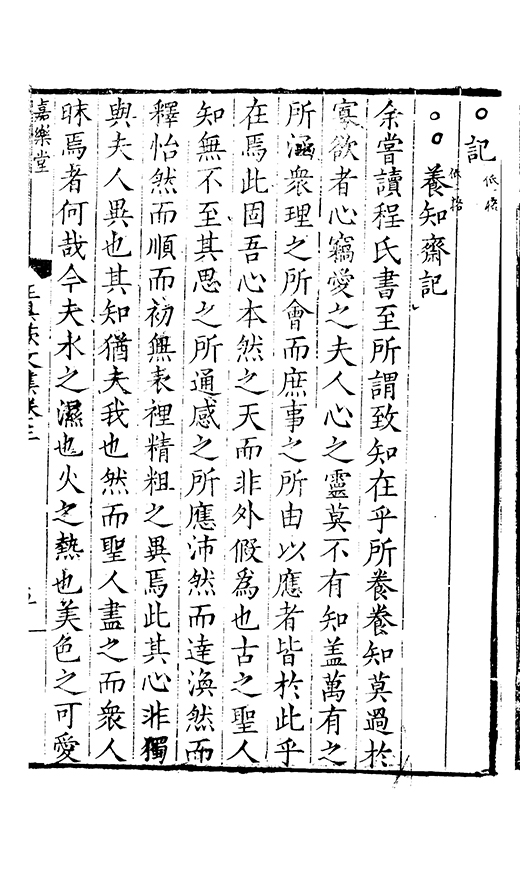 ○記 低格
○○養知齋記 低格
余嘗讀程氏書至所謂致知在乎所養養知莫過於
寡欲者心竊愛之夫人心之靈莫不有知盖萬有之
所涵衆理之所會而庶事之所由以應者皆於此乎
在焉此固吾心本然之天而非外假爲也古之聖人
知無不至其思之所通感之所應沛然而達渙然而
釋怡然而順而初無表裡精粗之異焉此其心非獨
與夫人異也其知猶夫我也然而聖人盡之而衆人
昧焉者何哉今夫水之濕也火之熱也美色之可愛
嘉樂堂
文集卷三